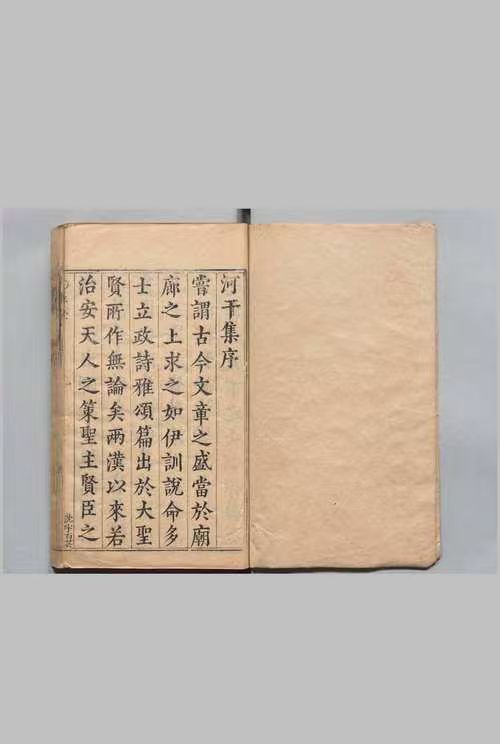 河干集序
嘗謂古今文章之盛當於廟
廊之上求之如伊訓說命多
士立政詩雅頌篇出於大聖
賢所作無論矣兩漢以來若
治安天人之策聖主賢臣之